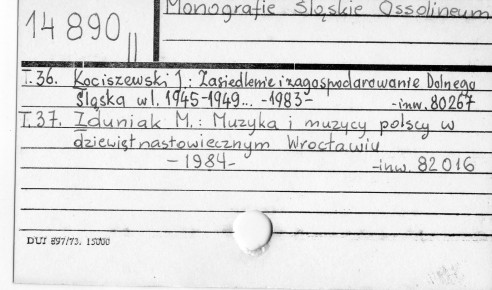 Monografie Śląskie Ossolineum
14 890
II
T.36. Kociszewski J.: Zasiedlenie i zagospodarowanie Dolnego
Śląska w l. 1945-1949... -1983- -inw. 80267
T.37. Zduniak M.: Muzyka i muzycy polscy w
dziewiętnastowiecznym Wrocławiu
-1984- -inw. 82016
DUJ 897/73. 15000